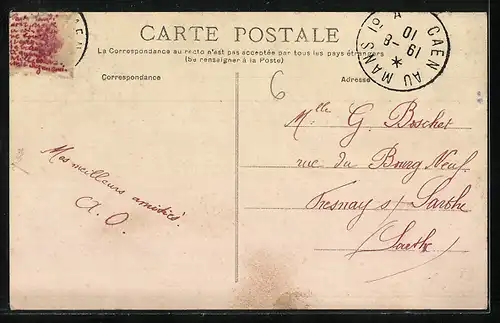 CARTE POSTALE
La Correspondance au recto n'est pas acceptée par tous les pays étrangers
(Se renseigner à la Poste)
Correspondance
Adresse
CAEN AU MANS 1o A
19 - 8
10
CAEN
6
Mes meilleurs amitiés!
A. O.
Mlle G. Boschet
rue du Bourg Neuf
Fresnay s/ Sarthe
(Sarthe)